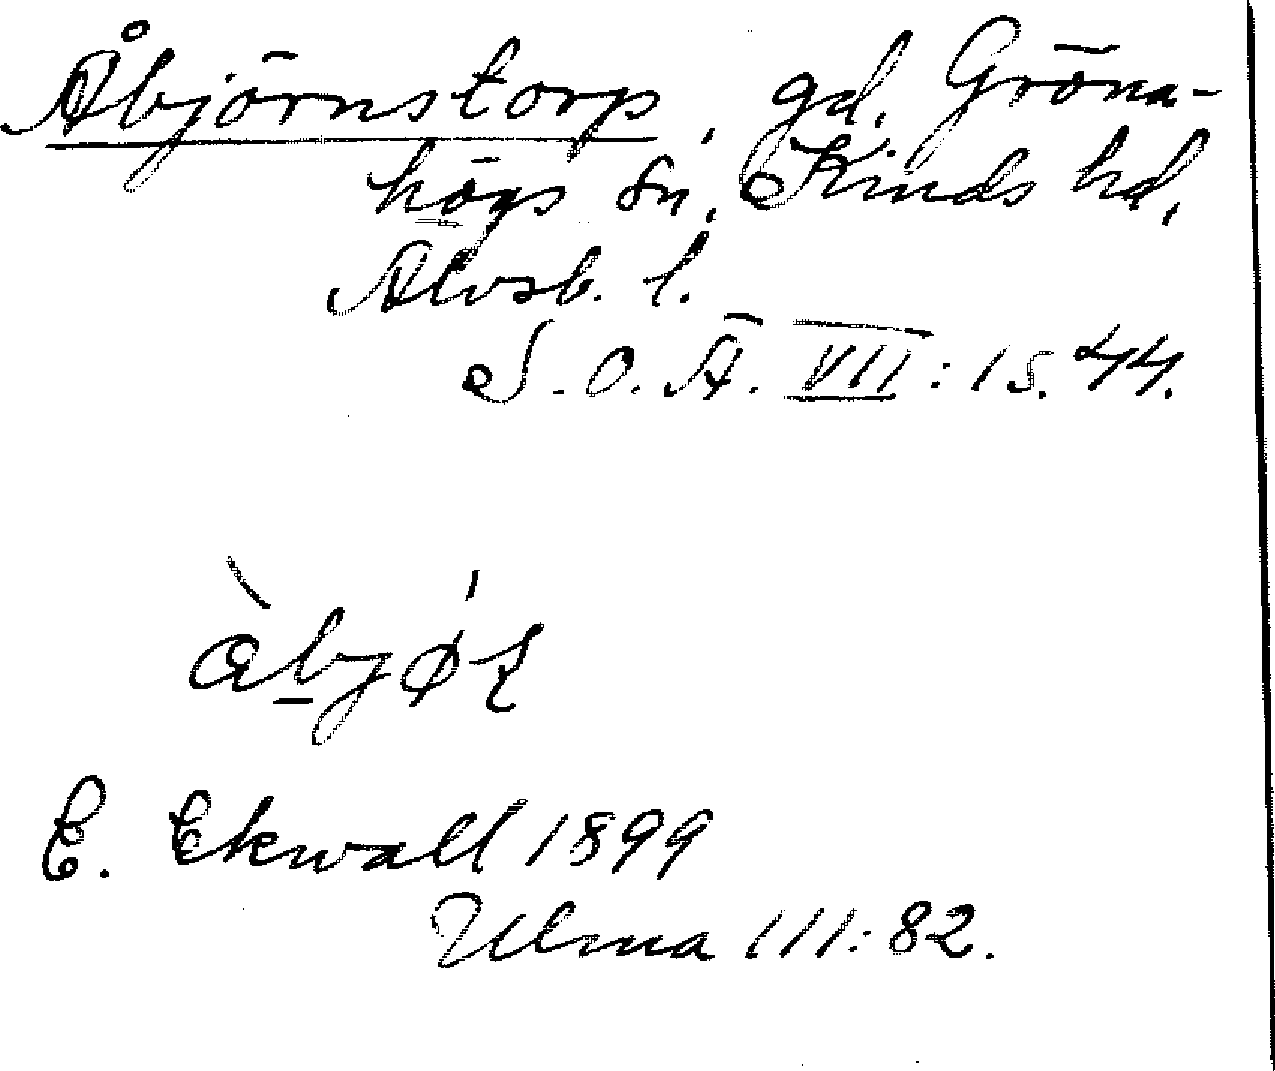 Åbjörnstorp, gd. Gröna-
högs sn, Kinds hd,
Älvsb. l.
S. O. Ä. VII: 1 s. 44.
E. Ekwall 1899
Ulma 111:82.